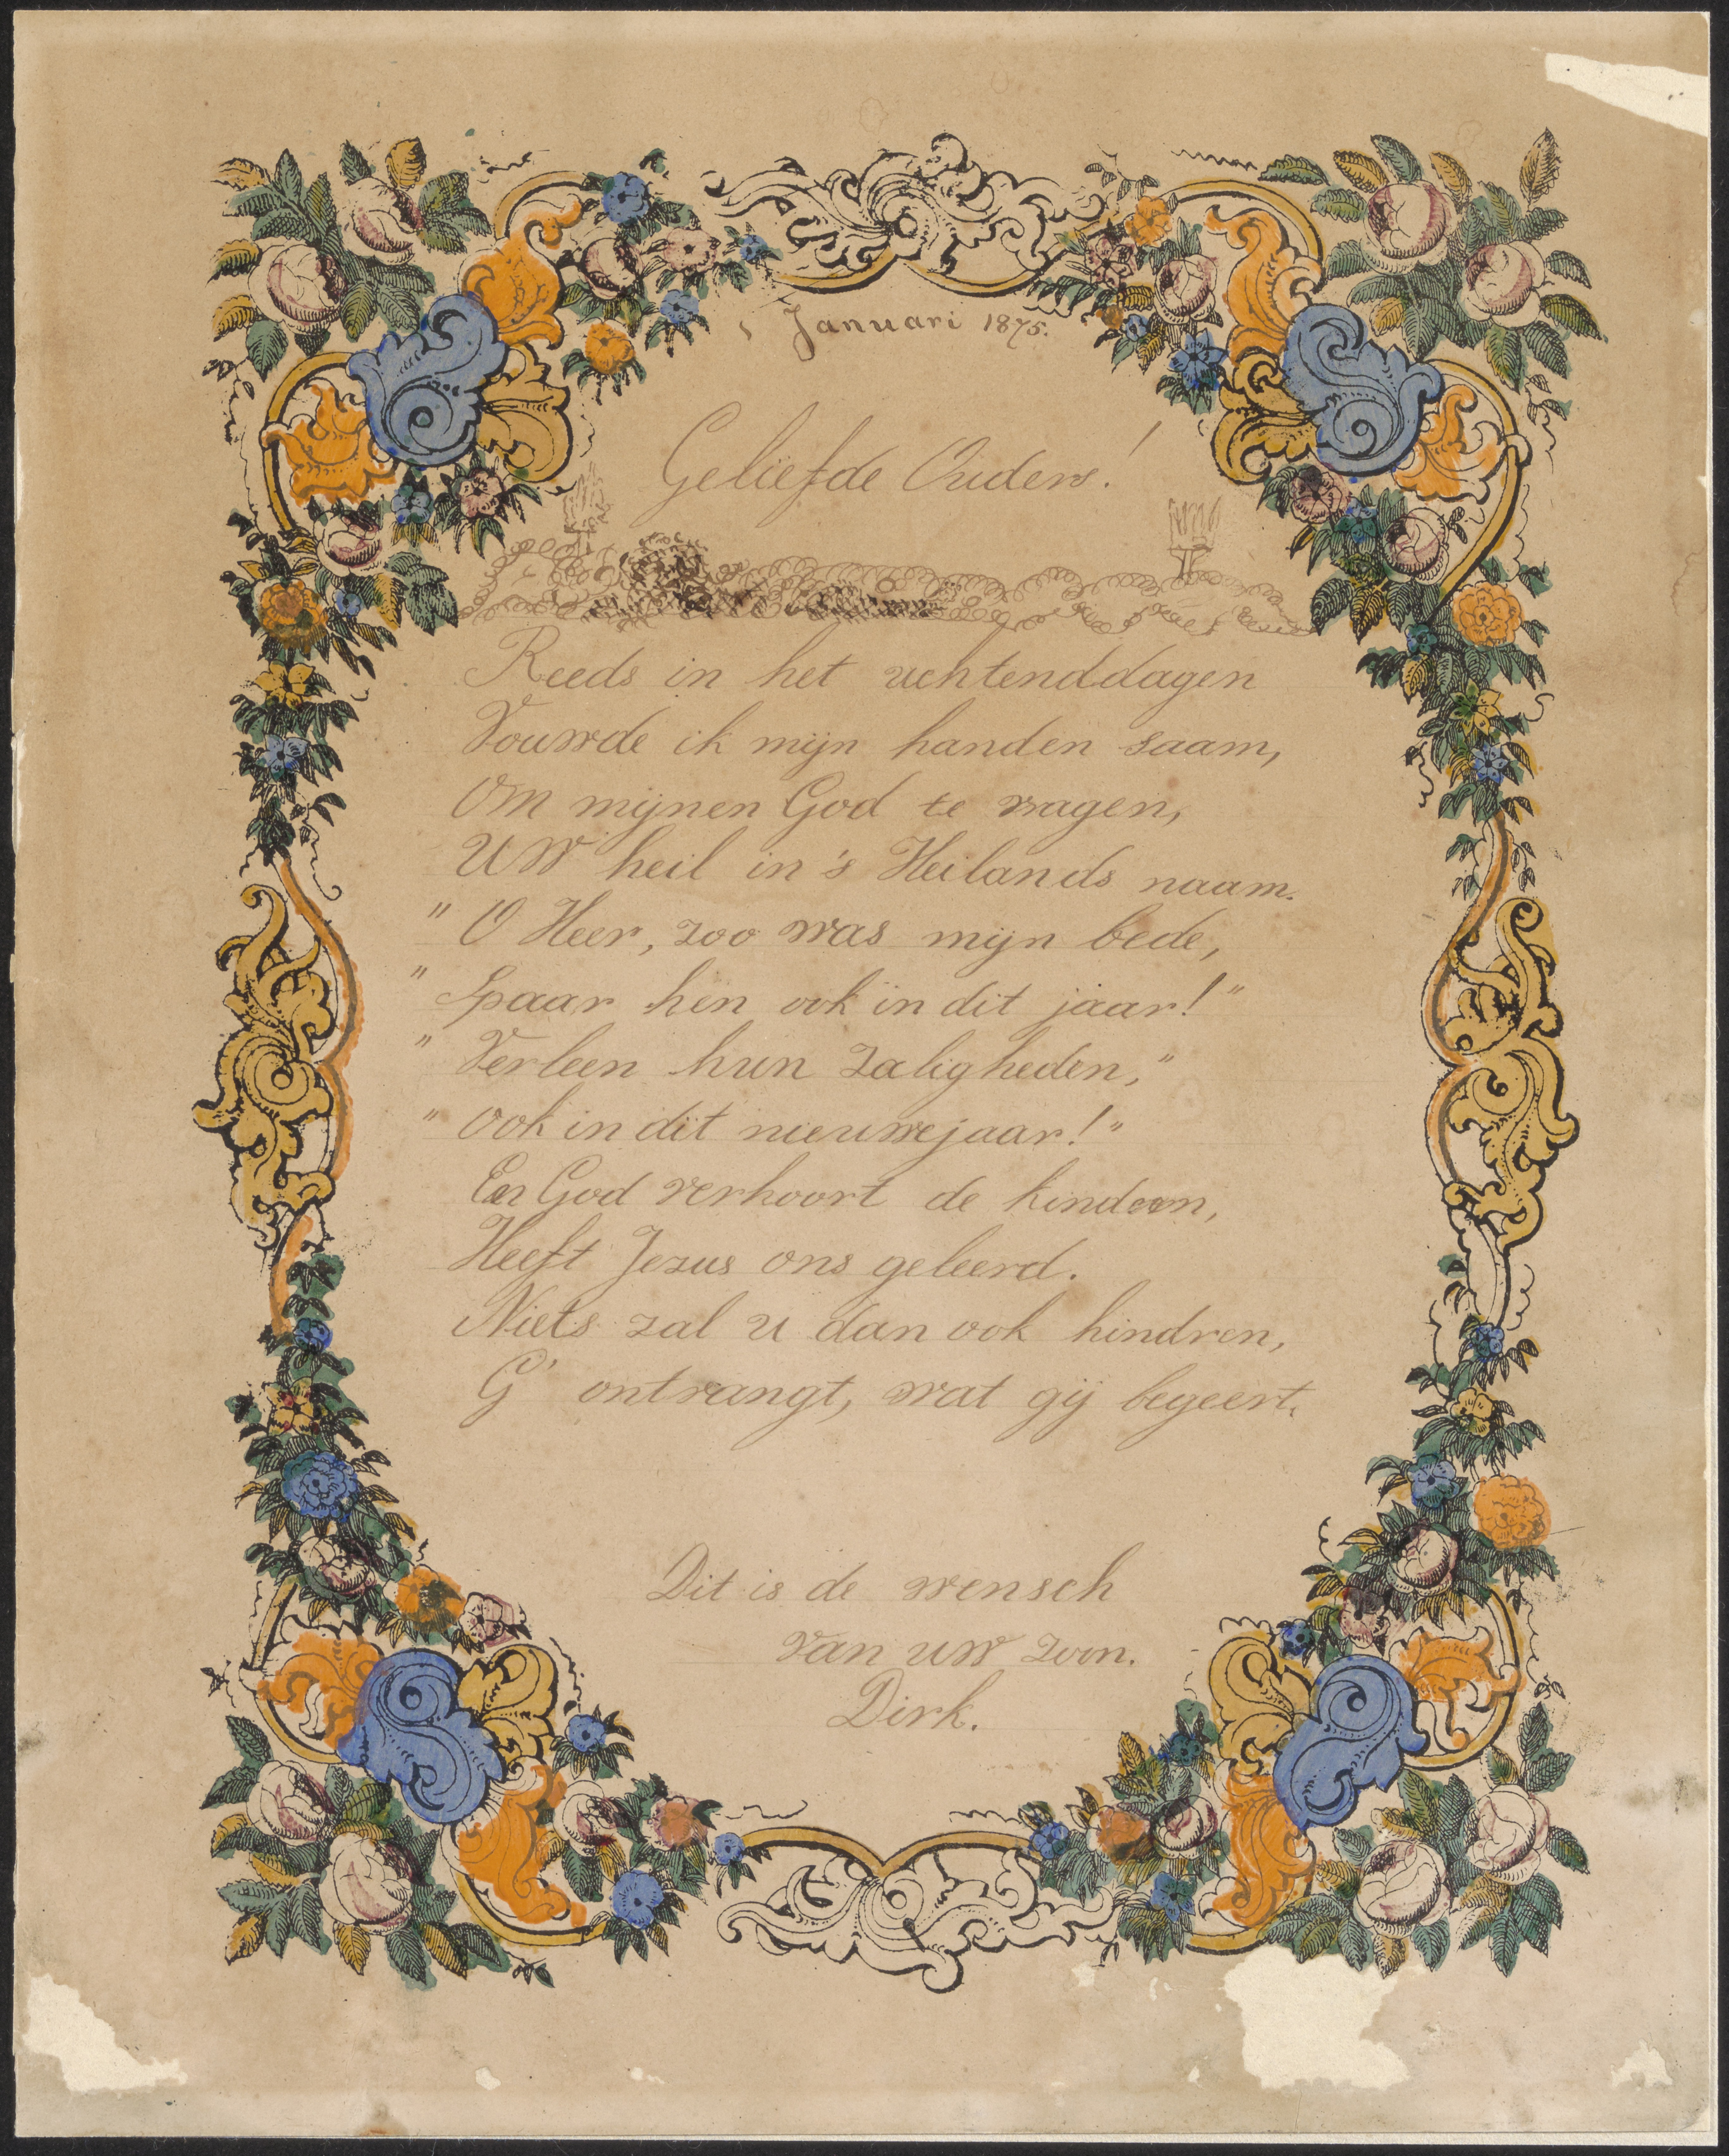 1 Januari 1875.
Geliefde Ouders!
Reeds in het uchtenddagen
Vouwde ik mijn handen saam,
Om mijnen God te vragen,
Uw heil in 's Heilands naam.
" O Heer, zoo was mijn bede,
" Spaar hen ook in dit jaar! "
" Verleen hun zaligheden, "
" Ook in dit nieuwejaar! "
En God verhoort de kindren,
Heeft Jezus ons geleerd.
Niets zal u dan ook hindren,
G' ontvangt, wat gij begeert.
Dit is de wensch
van uw zoon.
Dirk.